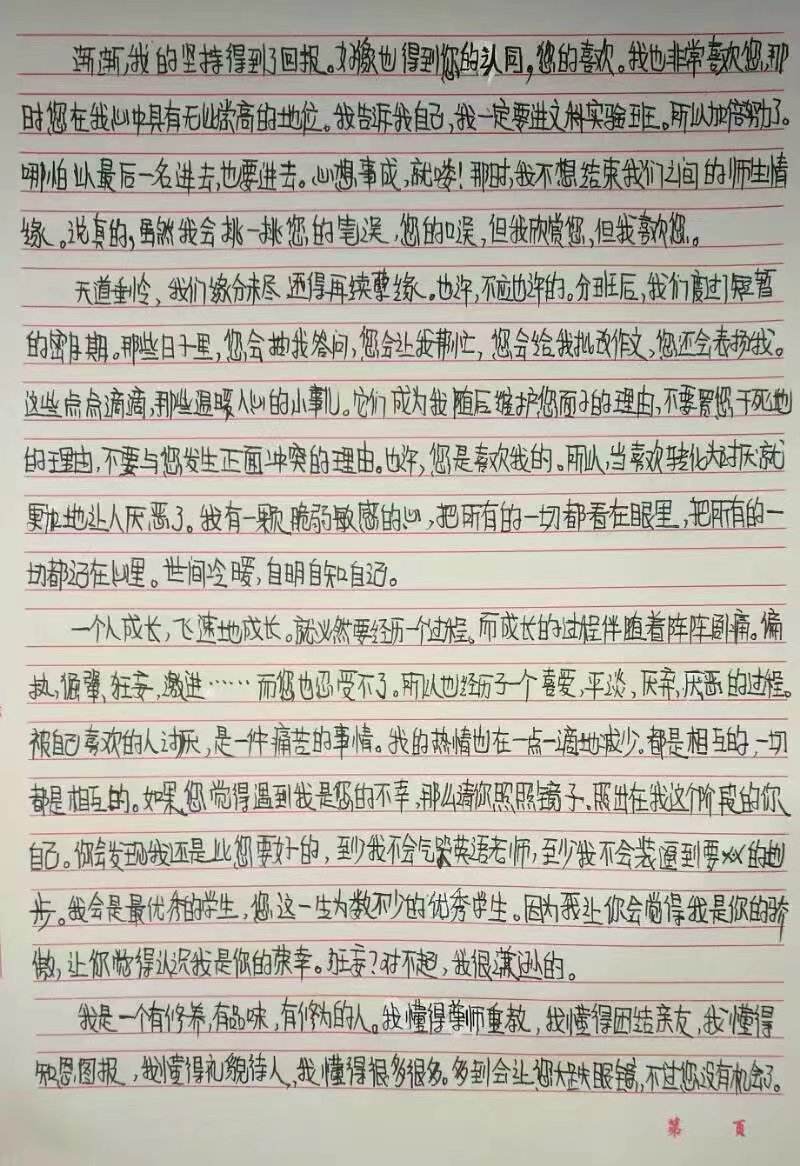 渐渐,我的坚持得到了回报。好像也得到您的认同,您的喜欢。我也非常喜欢您,那
时您在我心中具有无比崇高的地位。我告诉我自己,我一定要进文科实验班。所以加倍努力了。
哪怕以最后一名进去,也要进去。心想事成,就喽!那时,我不想结束我们之间的师生情
缘。说真的,虽然我会挑一挑您的笔误,您的口误,但我欣赏您,但我喜欢您。
天道垂怜,我们缘分未尽,还得再续孽缘。也许,不应也许的。分班后,我们度过了短暂
的蜜月期。那些日子里,您会抽我答问,您会让我帮忙,您会给我批改作文,您还会表扬我。
这些点点滴滴,那些温暖人心的小事儿。它们成为我随后维护您面子的理由,不要置您于死地
的理由,不要与您发生正面冲突的理由。也许,您是喜欢我的。所以,当喜欢转化为讨厌就
更加地让人厌恶了。我有一颗脆弱敏感的心,把所有的一切都看在眼里,把所有的一
切都记在心里。世间冷暖,自明自知自记。
一个人成长,飞速地成长。就必然要经历一个过程。而成长的过程伴随着阵阵剧痛。偏
执,倔犟,狂妄,激进……而您也忍受不了。所以也经历了一个喜爱,平淡,厌弃,厌恶的过程。
被自己喜欢的人讨厌,是一件痛苦的事情。我的热情也在一点一滴地减少。都是相互的,一切
都是相互的。如果您觉得遇到我是您的不幸,那么请你照照镜子。照出在我这个阶段的你
自己。你会发现我还是比您要好的,至少我不会气哭英语老师,至少我不会装逼到要xx的地
步。我会是最优秀的学生,您这一生为数不少的优秀学生。因为我让你会觉得我是你的骄
傲,让你觉得认识我是你的荣幸。狂妄?对不起,我很谦逊的。
我是一个有修养,有品味,有修为的人。我懂得尊师重教,我懂得团结亲友,我懂得
知恩图报,我懂得礼貌待人,我懂得很多很多。多到会让您大跌眼镜,不过您没有机会了。
第 页